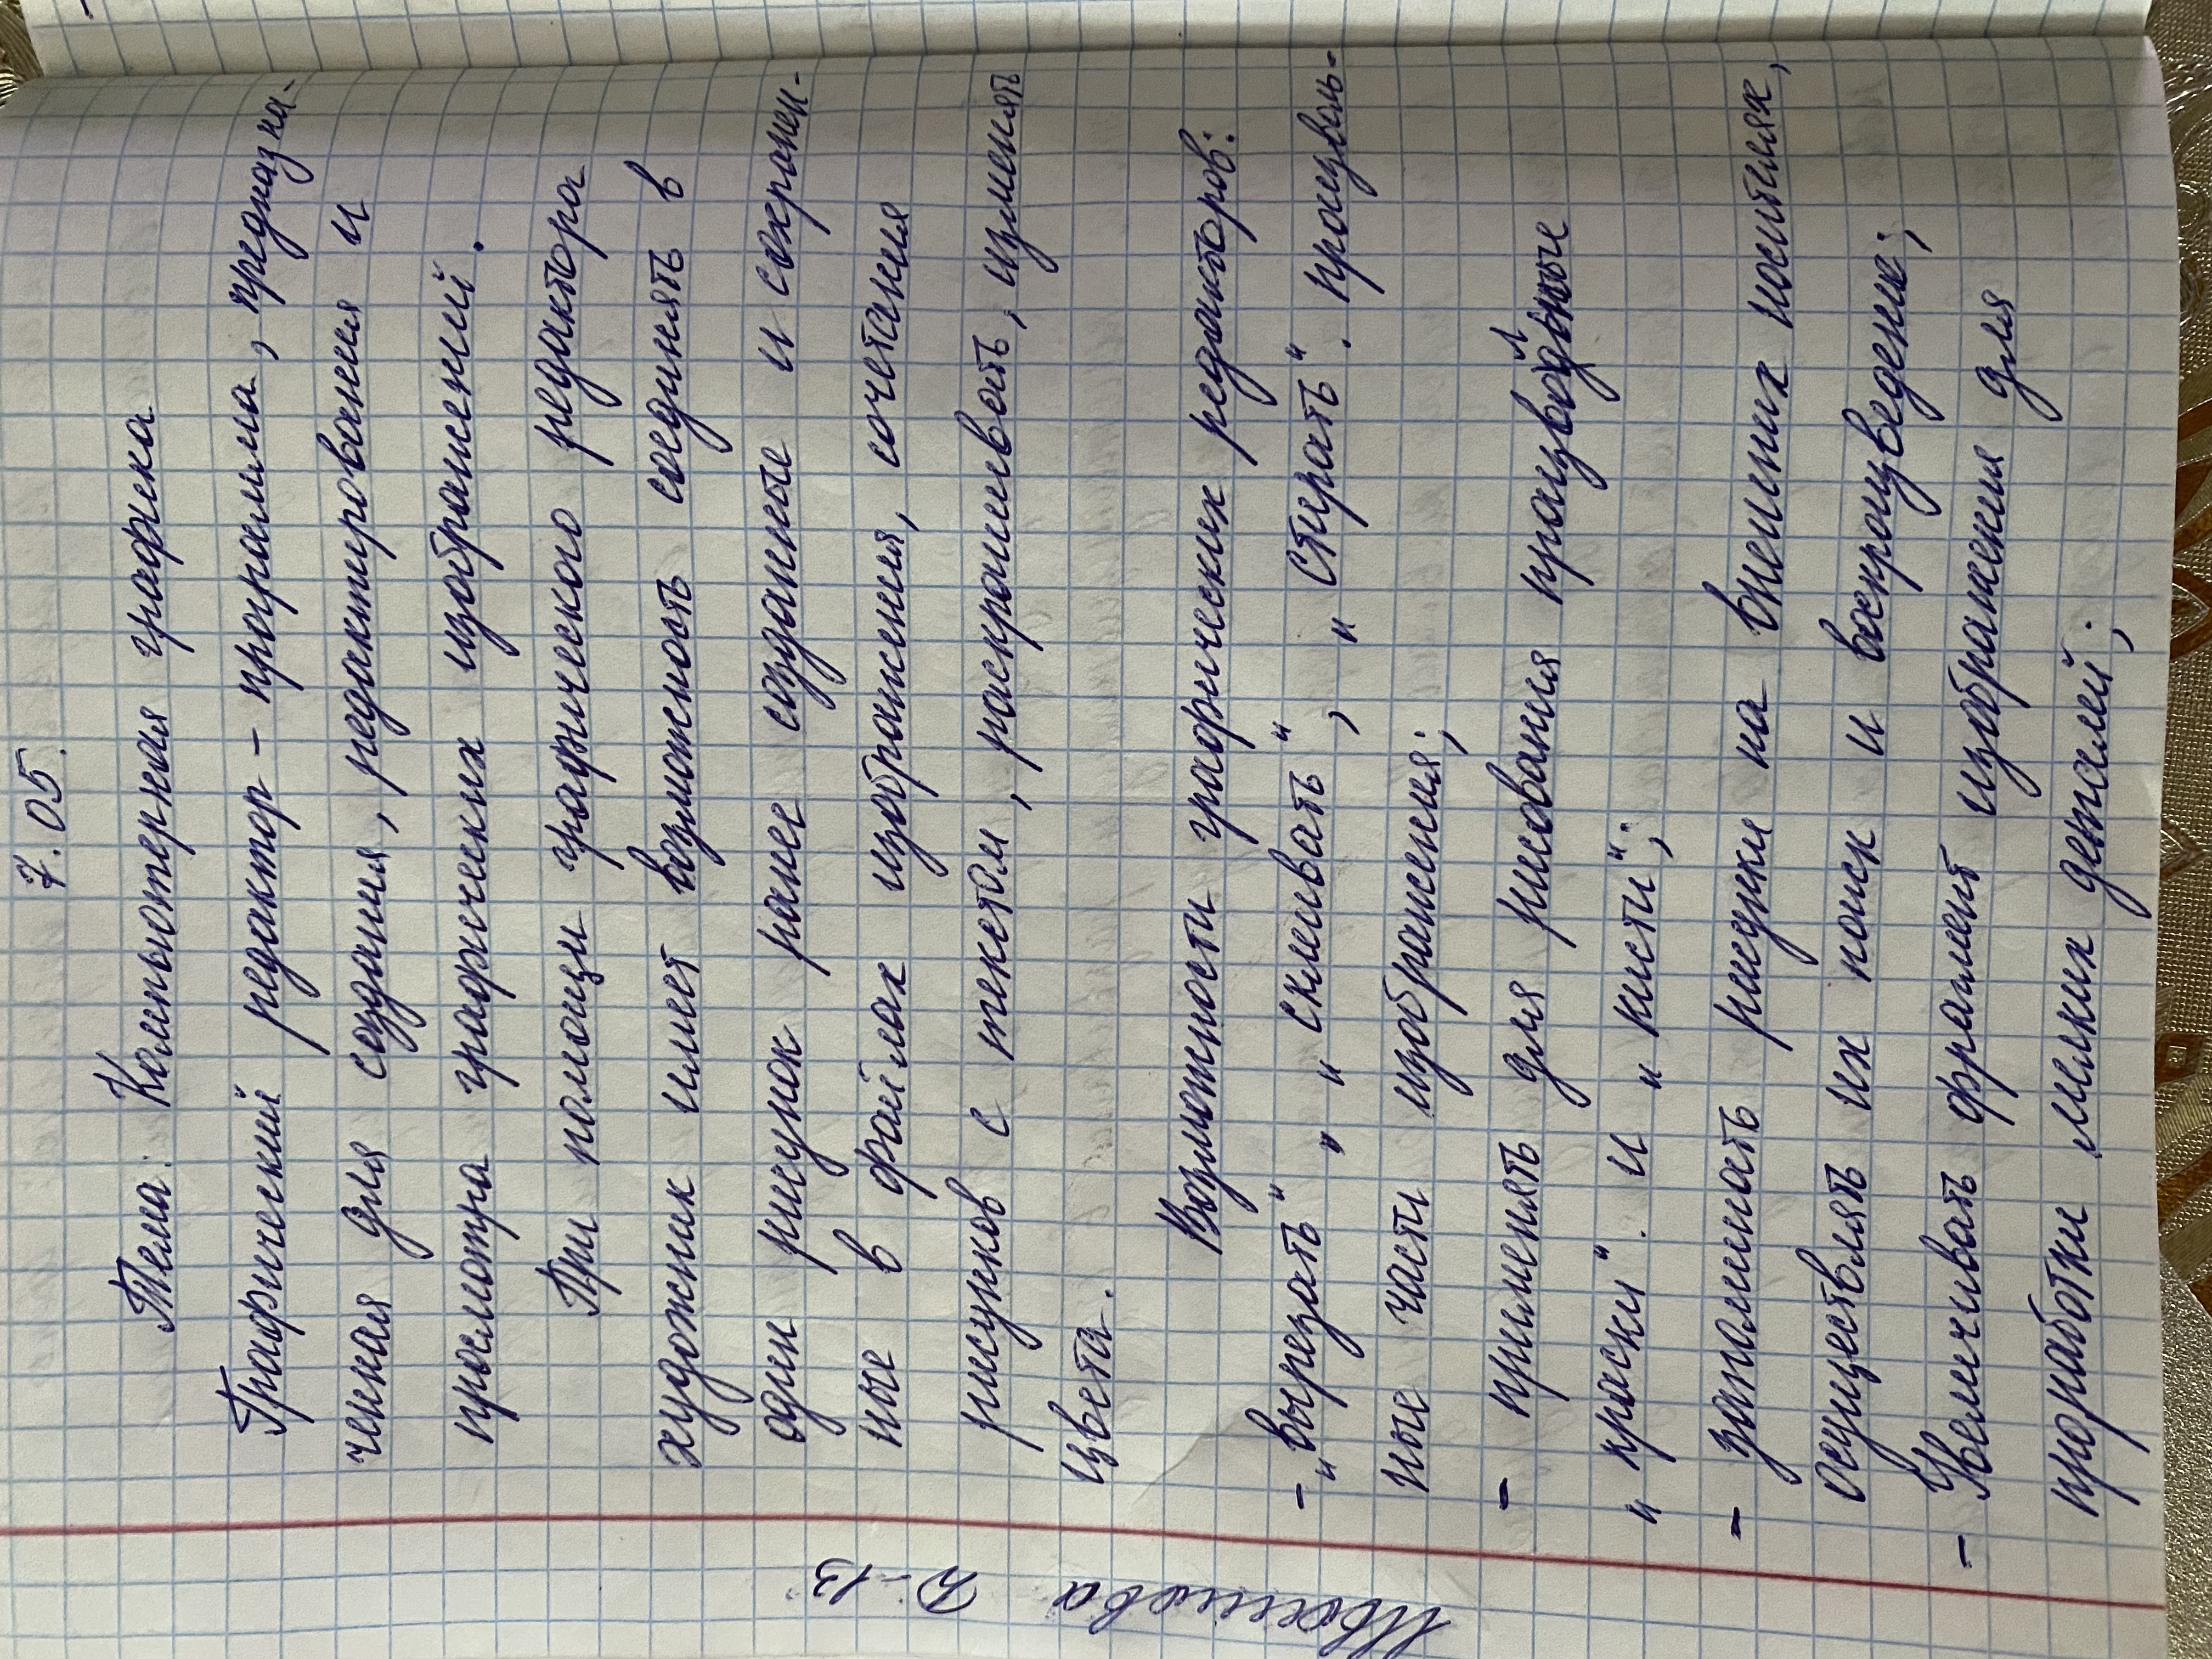 7.05.
Тема: Компьютерная графика
Графический редактор - программа, предназна-
ченная для создания, редактирования и
просмотра графических изображений.
При помощи графического редактора
художник имеет возможность соединять в
один рисунок ранее созданные и сохранен-
ные в файлах изображения, сочетания
рисунков с текстом, раскрашивать, изменять
цвета.
Возможности графических редакторов:
- „вырезать", „склеивать", „стирать". произволь-
ные части изображения;
- применять для рисования произвольные
„краски". и „кисти";
- запоминать рисунки на внешних носителях,
осуществлять их поиск и воспроизведение;
- Увеличивать фрагмент изображения для
проработки мелких деталей;
Д-13